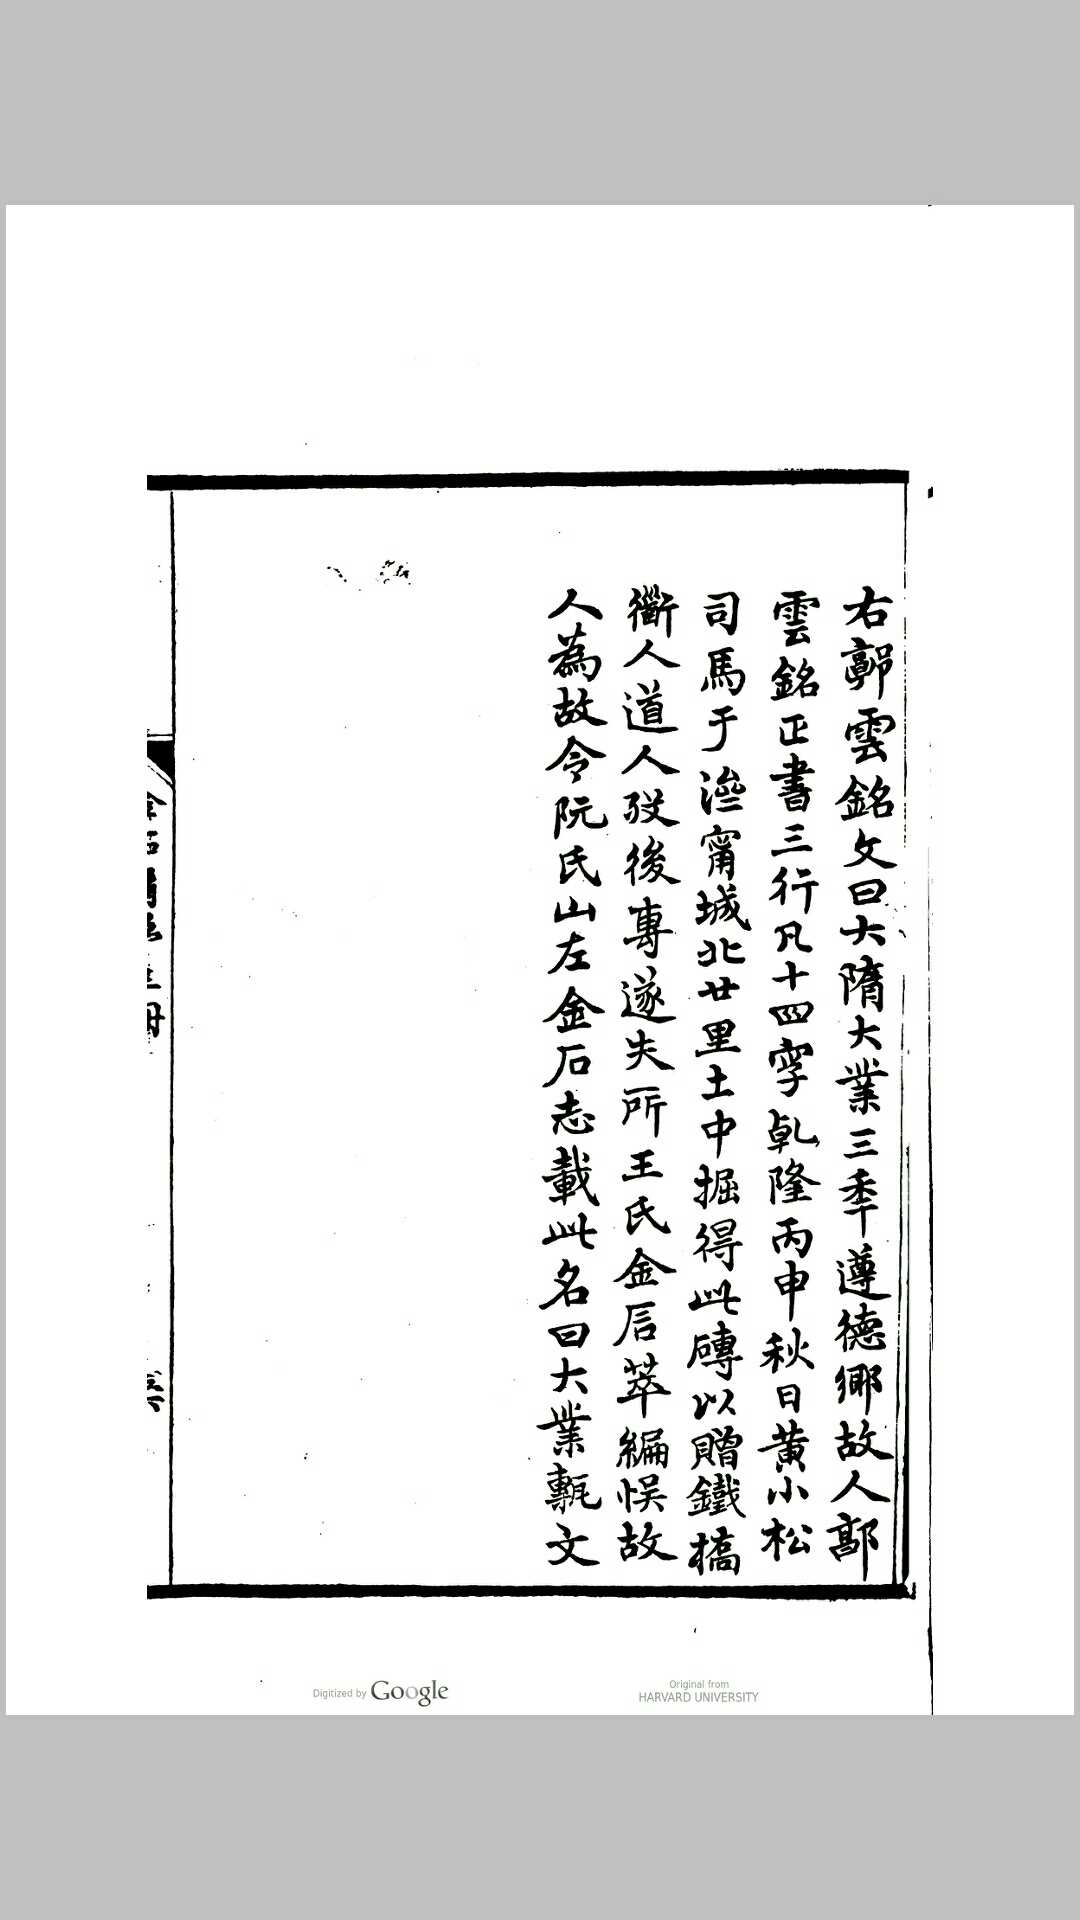 右鄣雲銘文曰大隋大業三秊遵德鄉故人鄣
雲銘正書三行凡十四字乾隆丙申秋日黄小松
司馬于濟甯城北廿里土中掘得此磚以贈鐵橋
衜人道人歿後專遂失所王氏金石萃編悞故
人為故令阮氏山左金石志載此名曰大業甎文
Digitized by Google
Original from
HARVARD UNIVERSITY